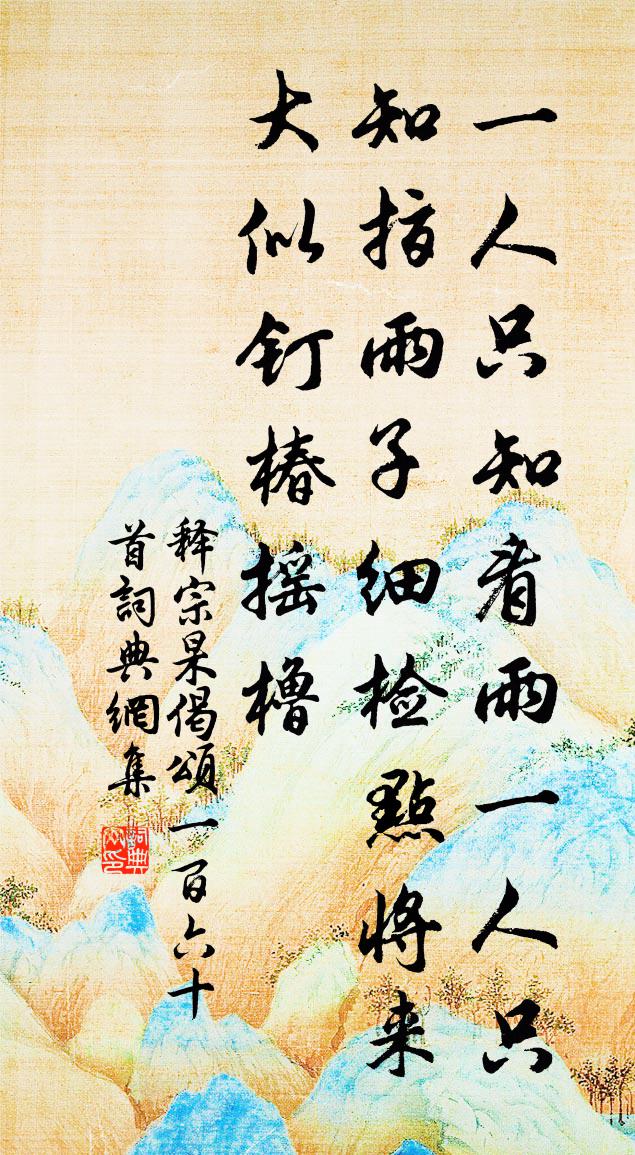 一人只知看雨一人只
知指雨子细检點将来
大似钉椿摇橹
释宗杲偈頌一百六十
首詞典網集